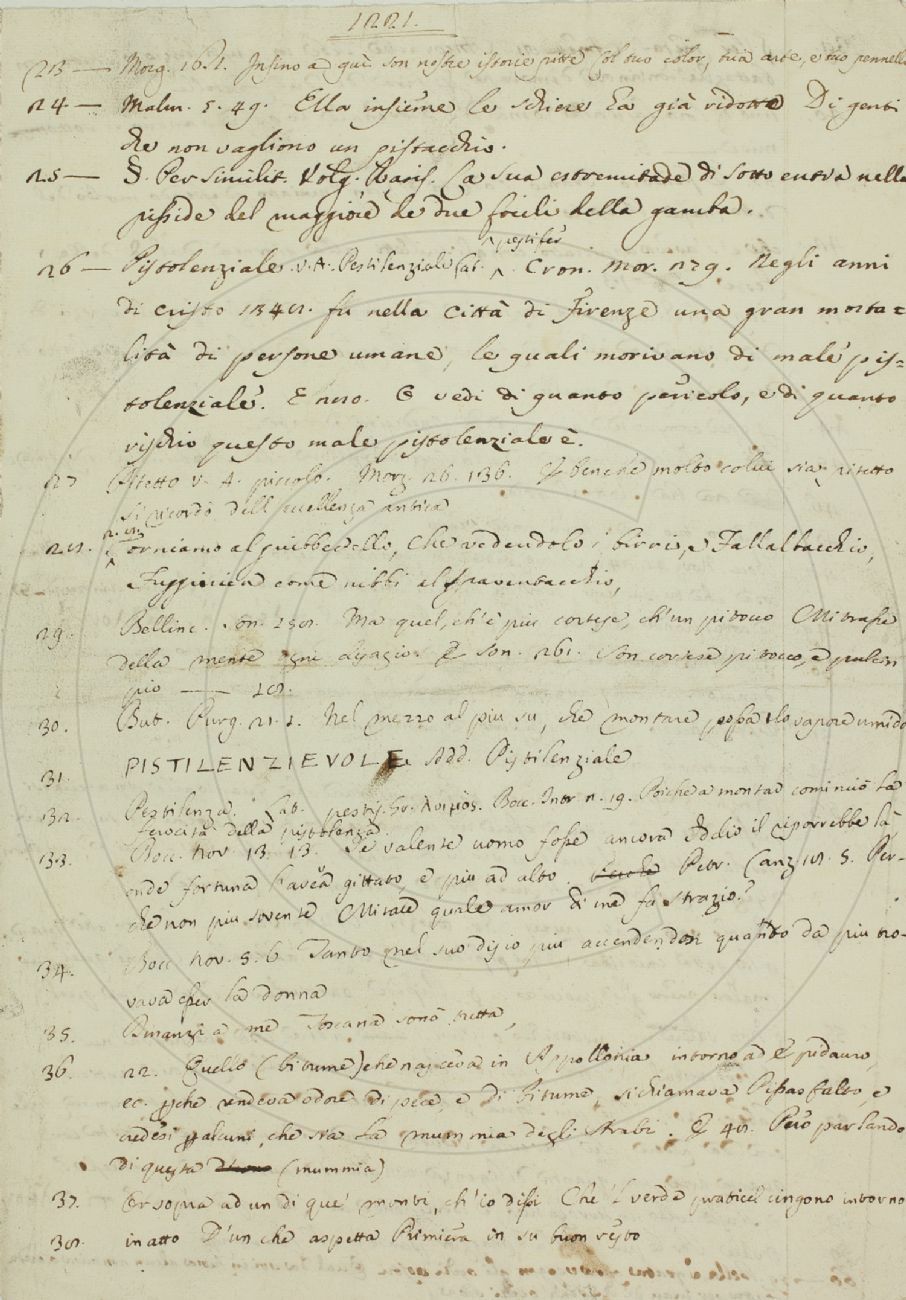 1221.
23 — Morg. 16. 1. Insino a quì son nostre istorie pitte Col tuo color, tua arte, e tuo pennello
24 — Malm. 5. 49. Ella insieme le schiere ha già ridotte Di genti
che non vagliono un pistacchio.
25 — §. Per similit. Volg. Rasis. La sua estremitade di sotto entra nella
pisside del maggiore de due focili della gamba.
pestifer
26 — Pistolenziale. v. A. Pestilenziale Lat. ^. Cron. Mor. 279. Negli anni
di cristo 1348. fu nella Città di Firenze una gran morta=
lità di persone umane, le quali morivano di male pis=
tolenziale. E 280. O vedi di quanto pericolo, e di quanto
rischio questo male pistolenziale è.
27 Pitetto v. A. piccolo. Morg. 26. 136. E benchè molto colui sia pitetto
si ricordò dell'eccellenza antica
28. Torniamo al pubberdello, Che vedendolo i birri, e Fallaltacchio,
Fuggivica come nibbi al spaventacchio,
29. Bellinc. Son. 258. Ma quel, ch'è più cortese, ch'un pitocco Mi trasse
della mente ogni disagio. E Son. 261. Son cortese pitocco, e pulcin
pio — 18.
30. But. Purg. 21. 1. Nel mezzo al piu su, che montare possa lo vapore umido
31. PISTILENZIEVOLE Add. Pistilenziale
32. Pestilenza. Lat. pestis. Gr. λοιμός. Bocc. Intr. n. 19. Poichè a montar cominciò la
ferocità della pistolenza
33. Bocc. nov. 13. 13. Se valente uomo fosse ancora Iddio il riporrebbe là
onde fortuna l'aveva gittato, e più ad alto Petr. Canz. 18. 5. Per-
che non piu sovente Mirate quale amor di me fa strazio?
34. Bocc. nov. 5. 6. Tanto nel suo disio più accendendosi quanto da più tro-
vava esser la donna
35. Dinanzi a me Toscana sonò tutta,
36. 22. Quello (bitume) che nasceva in Appollonia intorno ad Epidauro,
ec. pche rendeva odore di pece, e di bitume, si chiamava Pissasfalto, e
credesi p alcuni, che sia la mummia degli Arabi. E 48. Però parlando
di questa (mummia)
37. Er sopra ad un di que' monti, ch'io dissi Che 'l verde praticel cingono intorno
38. in atto D'un che aspetta Primiera in su buon resto